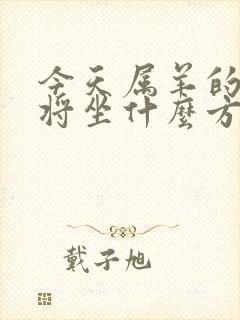 今天属羊的
将坐什麼方
戴子旭